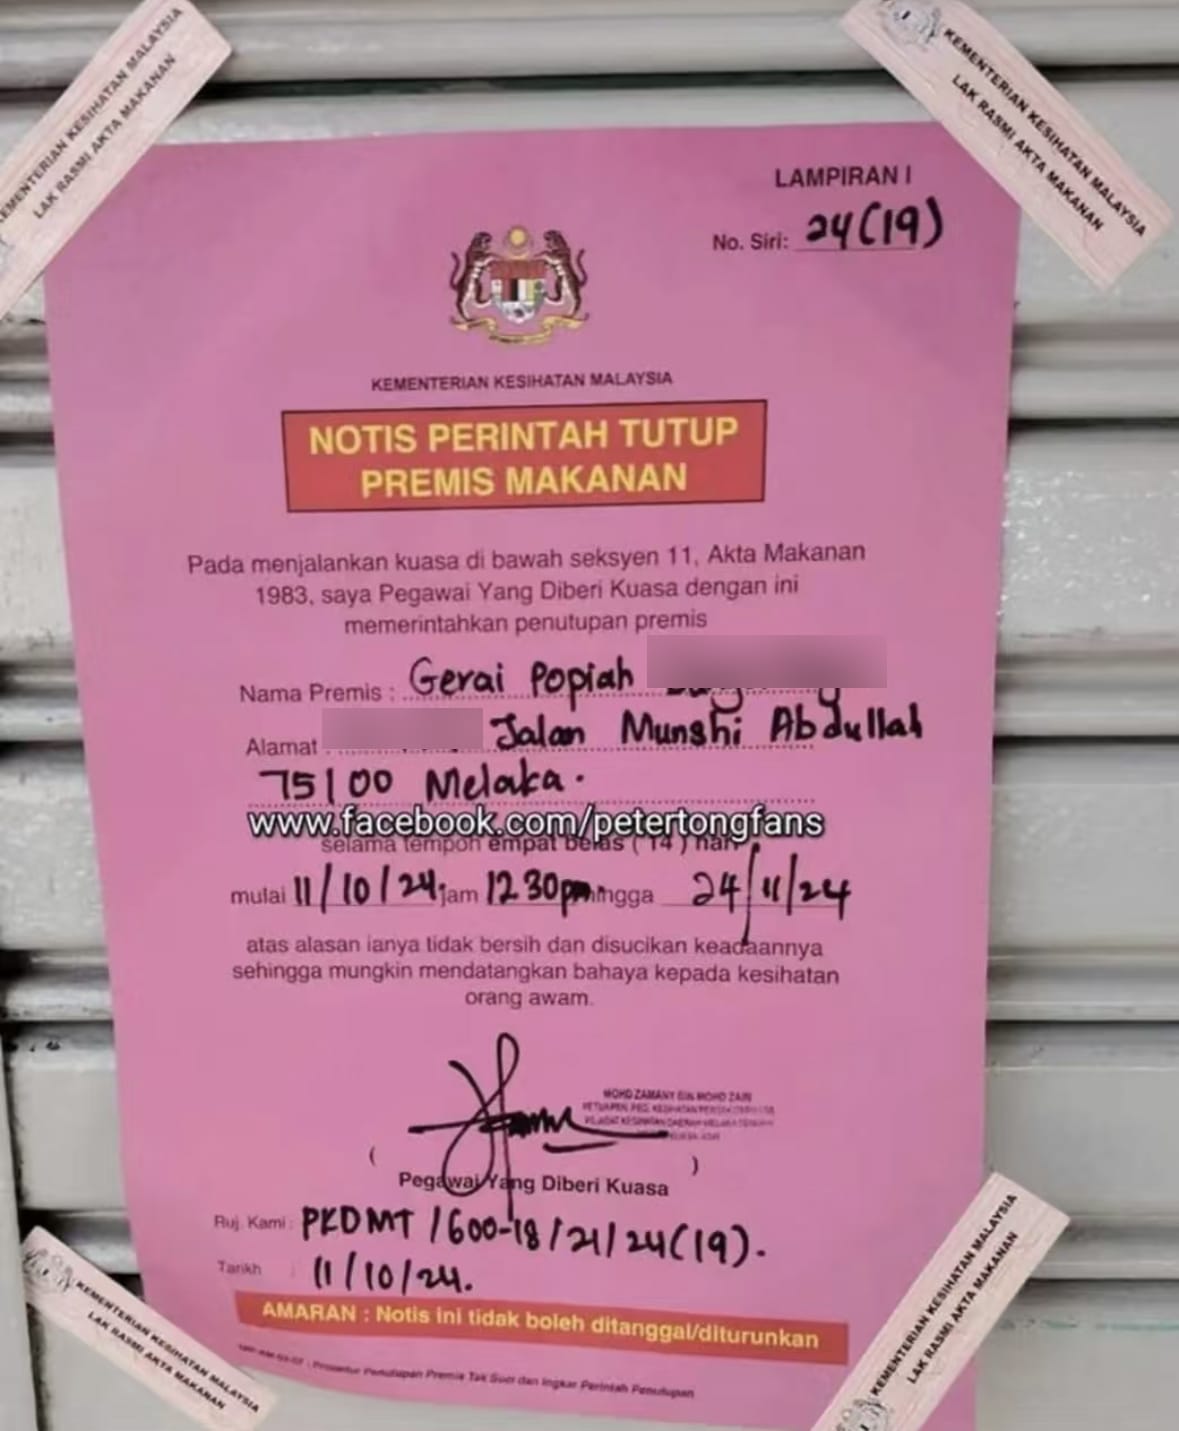 KEMENTERIAN KESIHATAN MALAYSIA
LAK RASMI AKTA MAKANAN
KEMENTERIAN KESIHATAN MALAYSIA
LAK RASMI AKTA MAKANAN
LAMPIRAN I
No. Siri: 24(19)
KEMENTERIAN KESIHATAN MALAYSIA
NOTIS PERINTAH TUTUP
PREMIS MAKANAN
Pada menjalankan kuasa di bawah seksyen 11, Akta Makanan
1983, saya Pegawai Yang Diberi Kuasa dengan ini
memerintahkan penutupan premis
Nama Premis : Gerai Popiah
Alamat : Jalan Munshi Abdullah
75100 Melaka.
www.facebook.com/petertongfans
selama tempoh empat belas ( 14 ) hari
mulai 11/10/24 jam 12.30pm hingga 24/11/24
atas alasan ianya tidak bersih dan disucikan keadaannya
sehingga mungkin mendatangkan bahaya kepada kesihatan
orang awam.
MOHD ZAMANY BIN MOHD ZAIN
( )
Pegawai Yang Diberi Kuasa
Ruj. Kami : PKDMT/600-18/21/24(19).
Tarikh : 11/10/24.
AMARAN : Notis ini tidak boleh ditanggal/diturunkan
: Prosedur Penutupan Premis Tak Suci dan Ingkar Perintah Penutupan
KEMENTERIAN KESIHATAN MALAYSIA
LAK RASMI AKTA MAKANAN
KEMENTERIAN KESIHATAN MALAYSIA
LAK RASMI AKTA MAKANAN